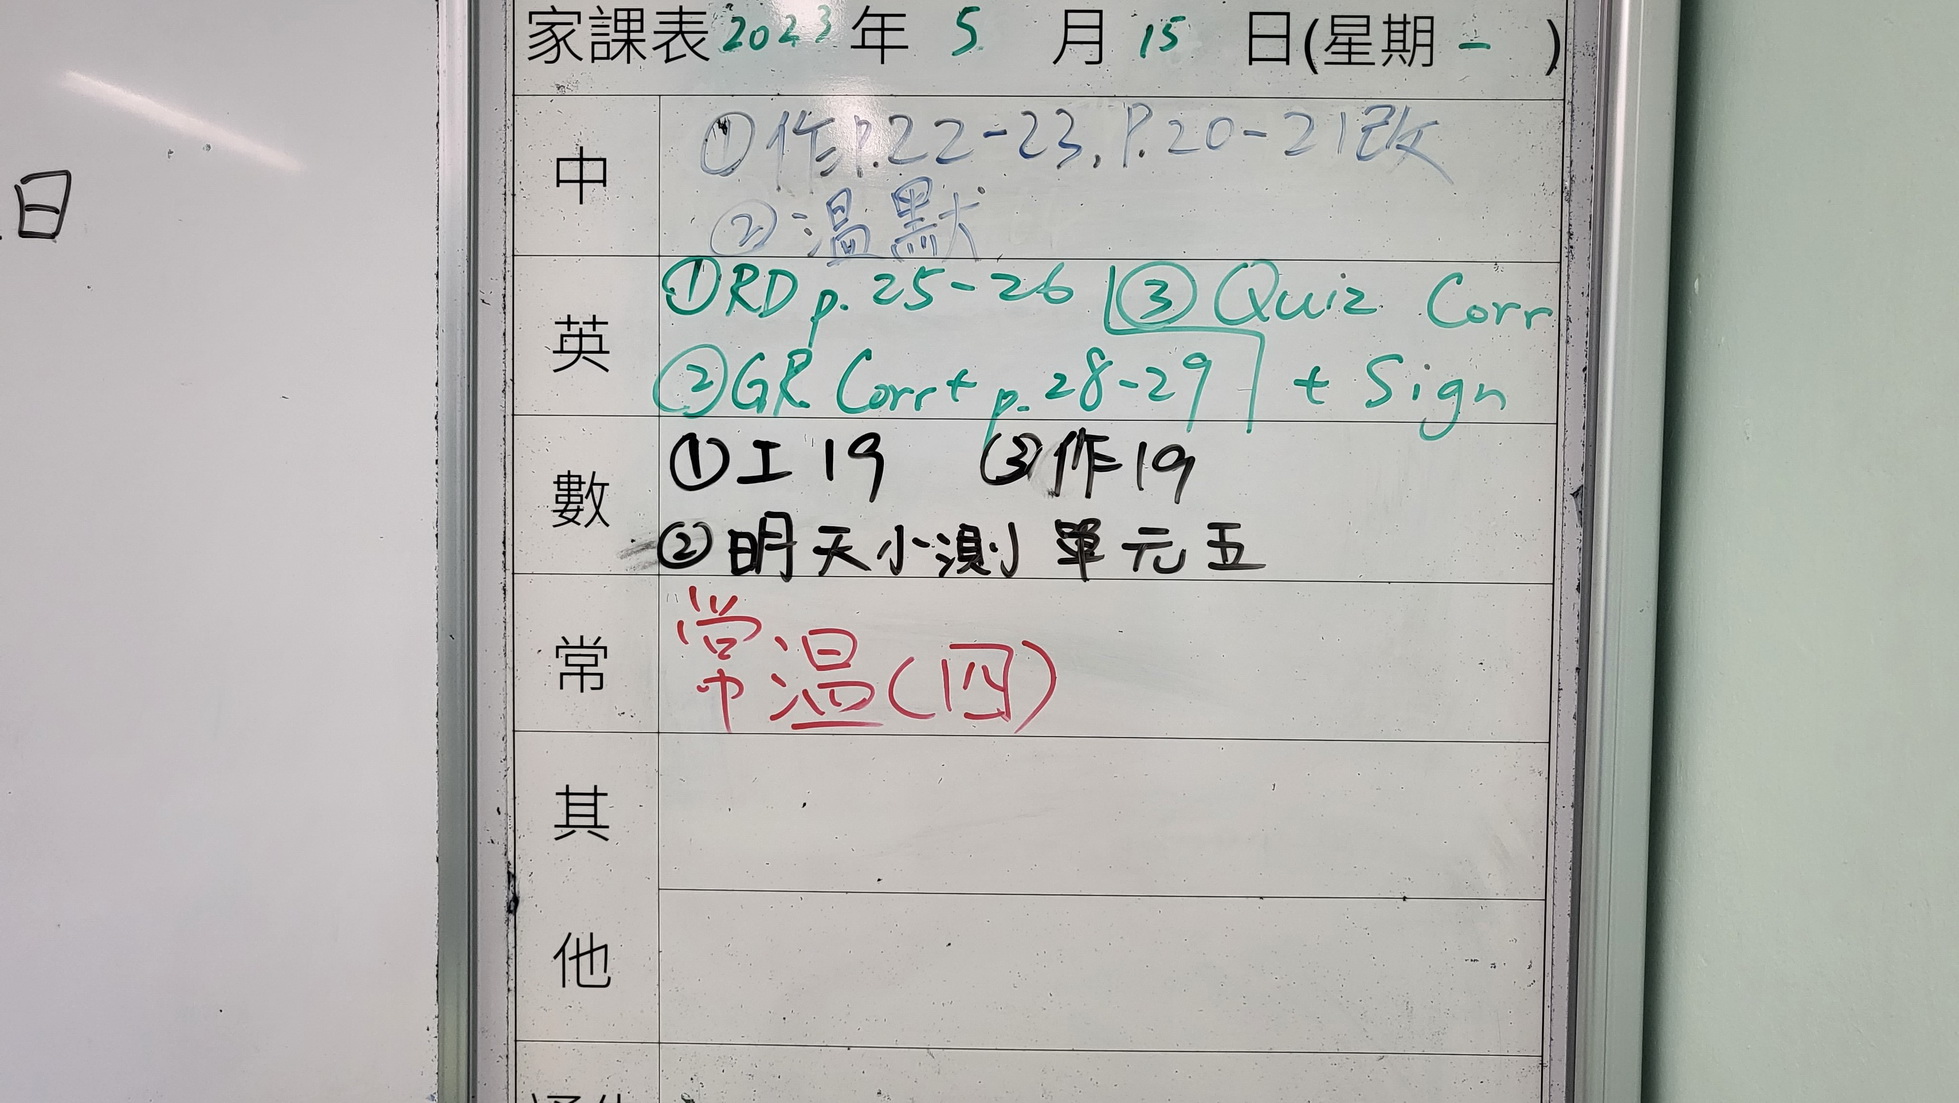 日
家課表2023年 5 月 15 日(星期一 )
中
①作P.22-23, P.20-21改
②溫默
英
①RD p. 25-26 ③ Quiz Corr
②GR Corr+ p. 28-29 + Sign
數
①工19 ③作19
②明天小測單元五
常
常溫(四)
其
他